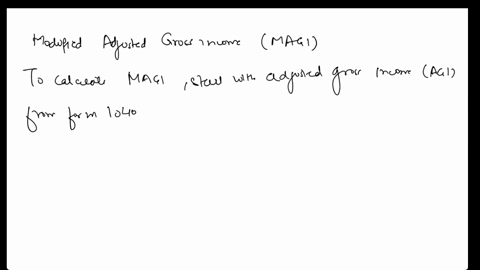 Modified Adjusted Gross income (MAGI)
To calculate MAGI , start with adjusted gross income (AGI)
from form 1040